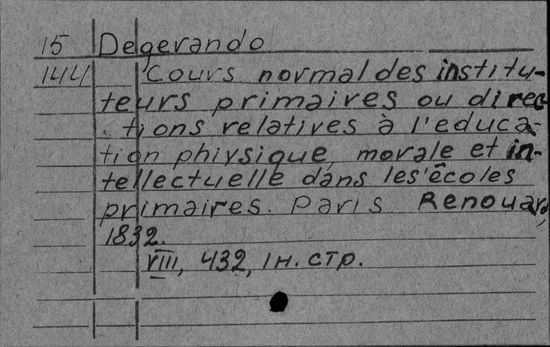 15 Degerando
144 Cours normal des institu-
teurs primaires ou direc
tions relatives à l'educa-
tion phiysique, morale et in-
tellectuelle dans les écoles
primaires. Paris Renouard,
1832.
VIII, 432, IH. СТР.